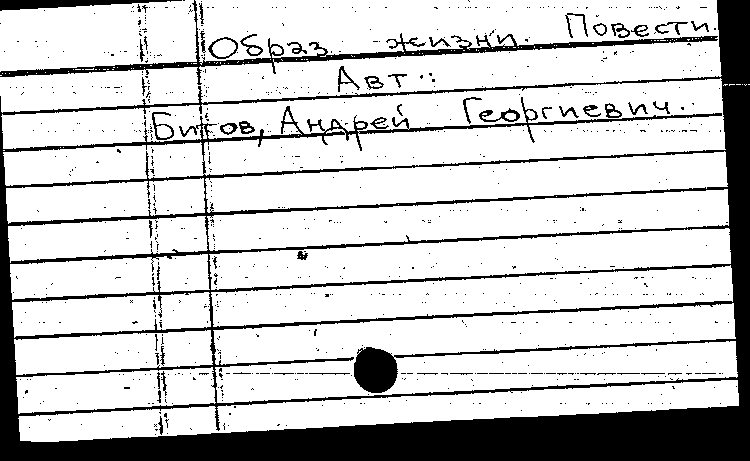 Образ жизни. Повести.
Авт.:
Битов, Андрей Георгиевич.